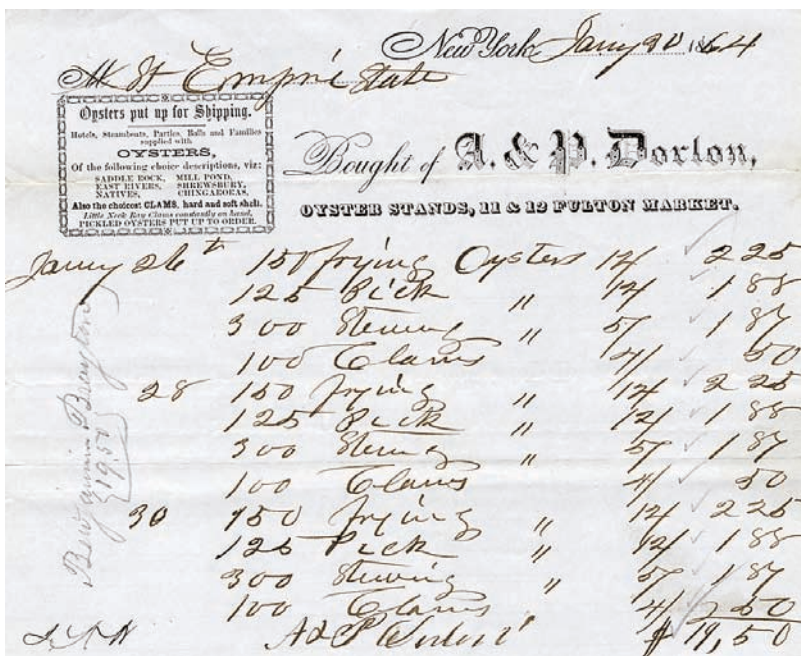 New York Jany 30 1864
M St Empire State
Oysters put up for Shipping.
Hotels, Steamboats, Parties, Balls and Families
supplied with
OYSTERS,
Of the following choice descriptions, viz:
SADDLE ROCK, MILL POND,
EAST RIVERS, SHREWSBURY,
NATIVES, CHINGARORAS.
Also the choicest CLAMS, hard and soft shell.
Little Neck Bay Clams constantly on hand.
PICKLED OYSTERS PUT UP TO ORDER.
Bought of A. & P. Dorlon,
OYSTER STANDS, 11 & 12 FULTON MARKET.
Jany 26th 150 frying Oysters 12/ 225
125 Pick " 12/ 188
300 Stewing " 5/ 187
100 Clams 4/ 50
28 150 frying " 12/ 225
125 Pick " 12/ 188
300 Stewing " 5/ 187
100 Clams 4/ 50
30 150 frying " 12/ 225
125 Pick " 12/ 188
300 Stewing " 5/ 187
100 Clams 4/ 50
A & P Dorlon $ 19,50
Benjamin Brayton
19.50